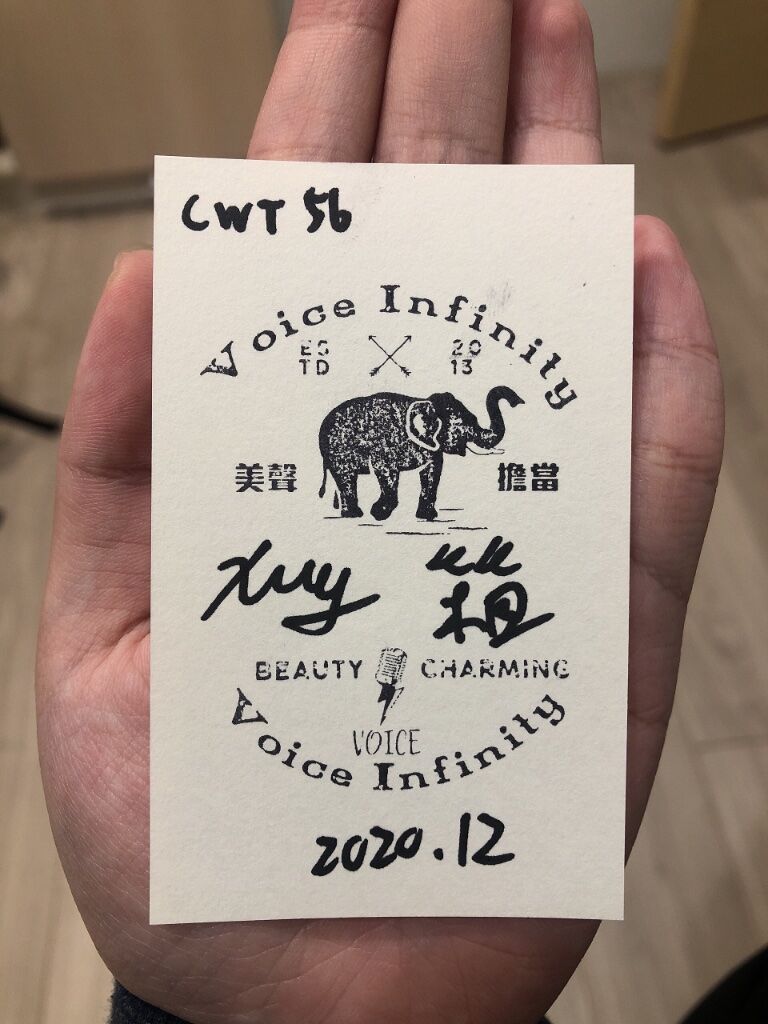 CWT 56
Voice Infinity
ES 20
TD 13
美聲 擔當
BEAUTY CHARMING
VOICE
Voice Infinity
2020.12